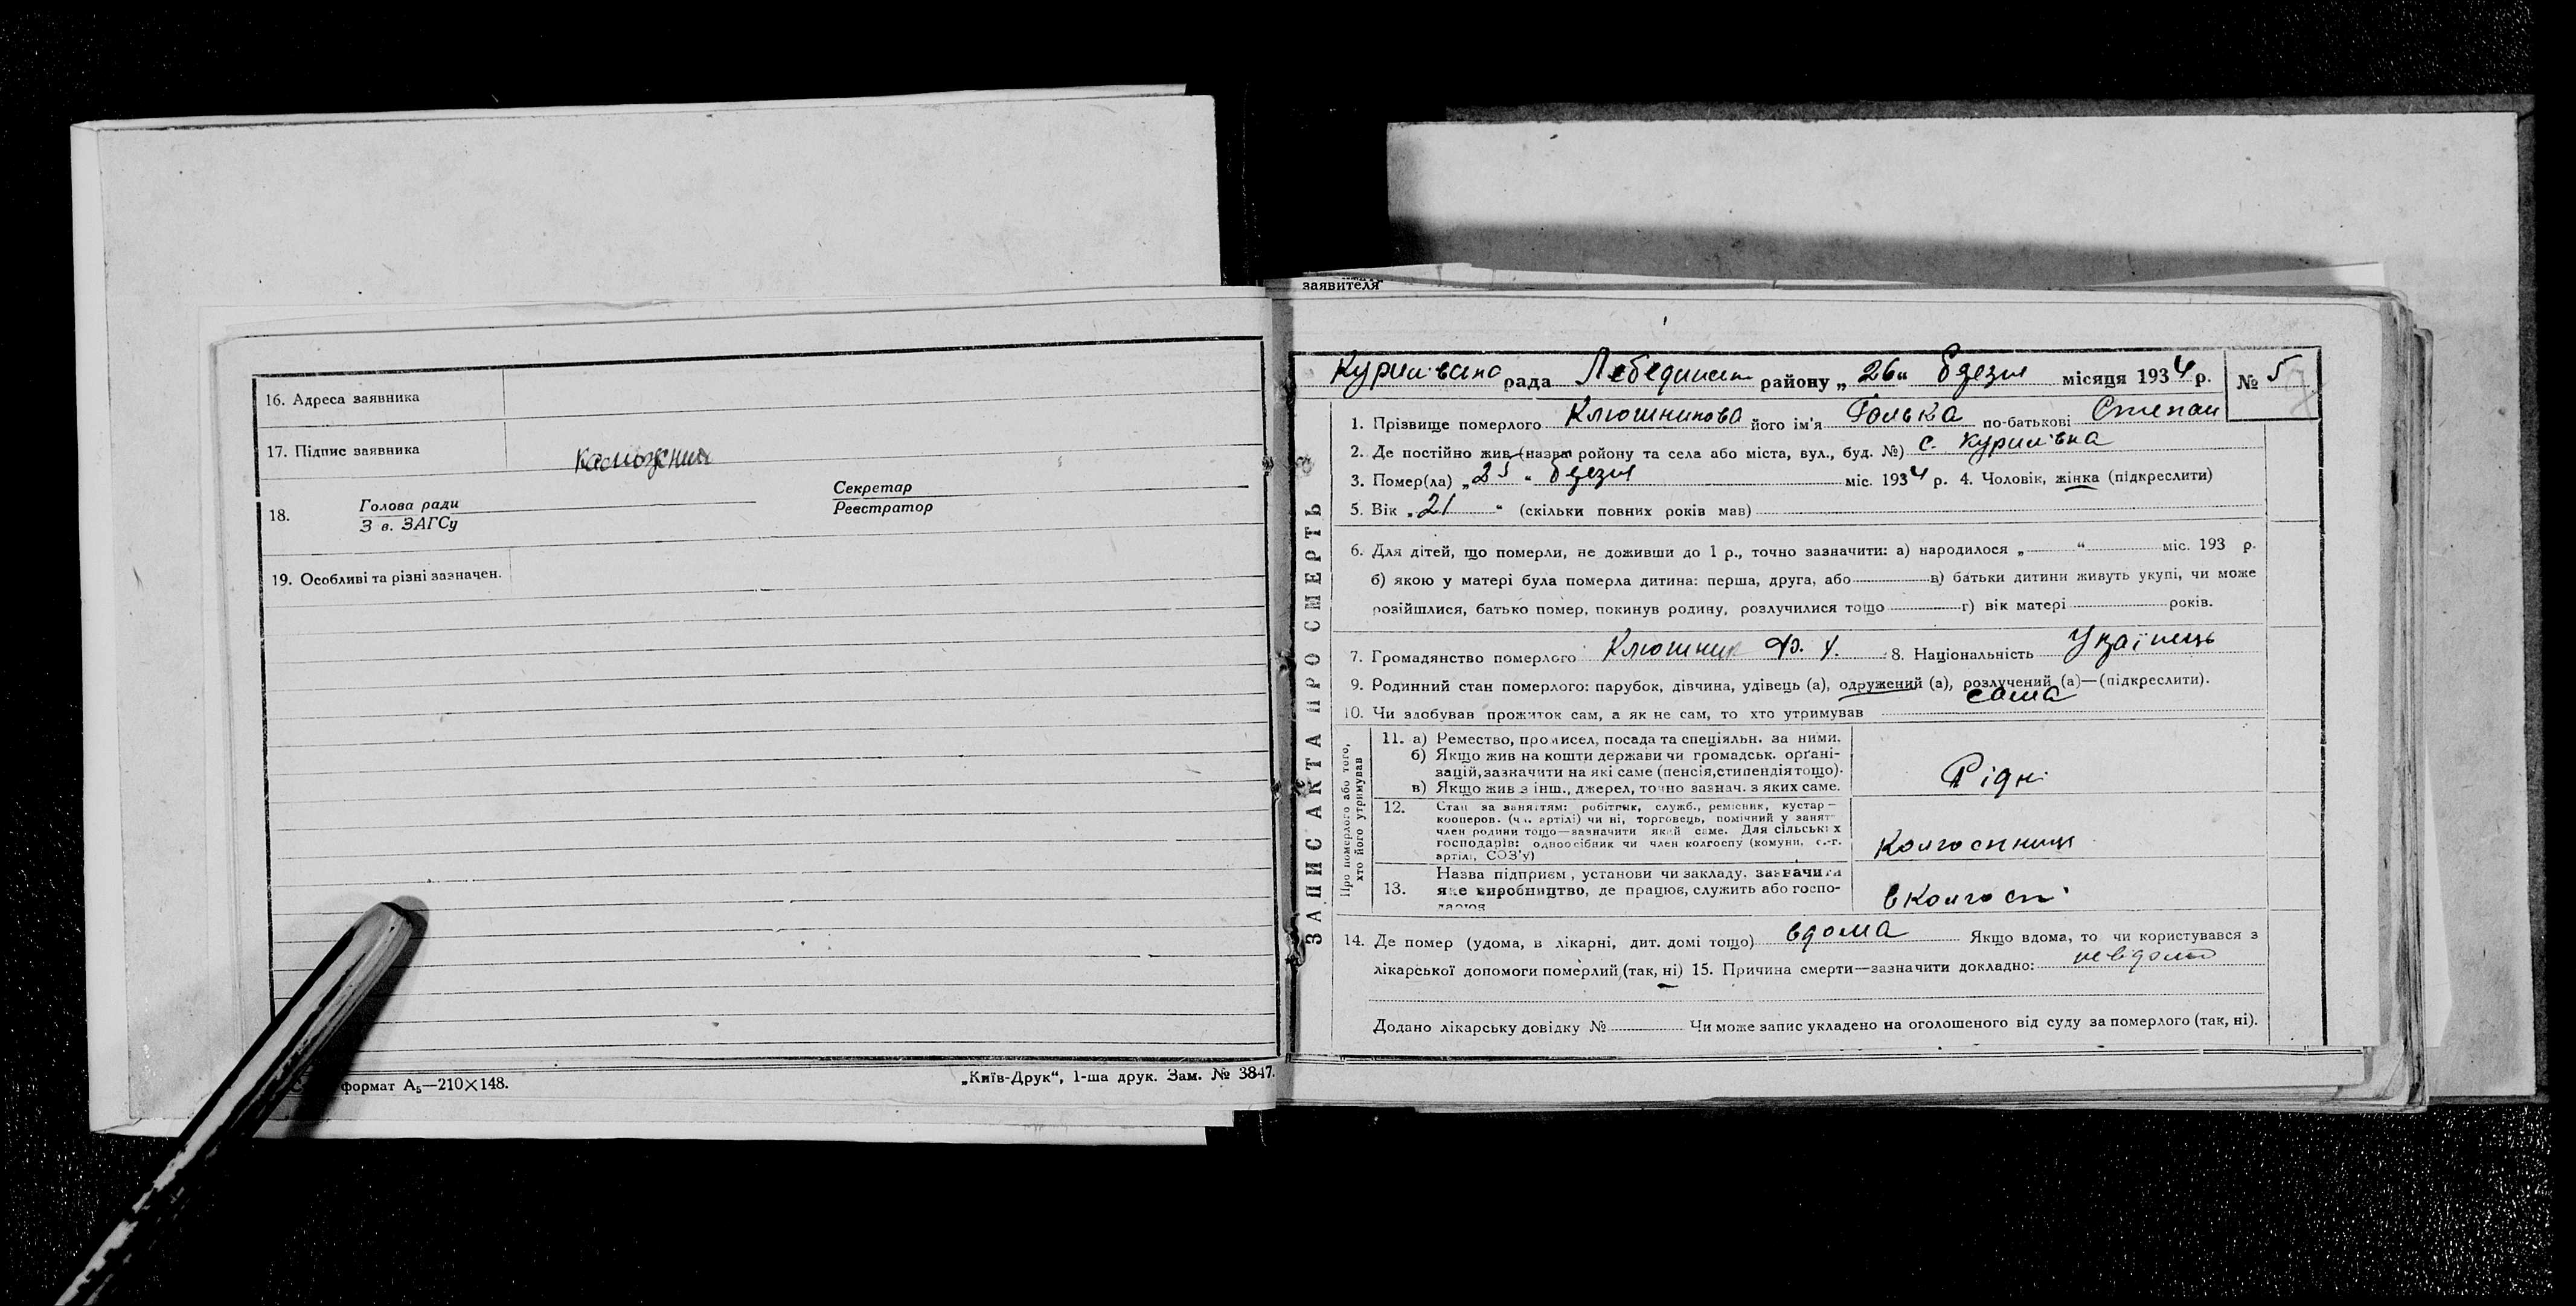 16. Адреса заявника
17. Підпис заявника
18. Голова ради
З в. ЗАГСу
Секретар
Реєстратор
19. Особливі та різні зазначен.
формат А5—210×148.
„Київ-Друк“, 1-ша друк. Зам. № 3847.
заявителя
ЗАПИС АКТА ПРО СМЕРТЬ
рада району „26“ місяця 1934 р. № 5
1. Прізвище померлого Клюшникова його ім'я по-батькові Степан
2. Де постійно жив (назва району та села або міста, вул., буд. №) с. Курилівка
3. Помер(ла) „25“ міс. 1934 р. 4. Чоловік, жінка (підкреслити)
5. Вік „21“ (скільки повних років мав)
6. Для дітей, що померли, не доживши до 1 р., точно зазначити: а) народилося „ “ міс. 193 р.
б) якою у матері була померла дитина: перша, друга, або в) батьки дитини живуть укупі, чи може
розійшлися, батько помер, покинув родину, розлучилися тощо г) вік матері років.
7. Громадянство померлого 8. Національність
9. Родинний стан померлого: парубок, дівчина, удівець (а), одружений (а), розлучений (а)—(підкреслити).
10. Чи здобував прожиток сам, а як не сам, то хто утримував сама
Про померлого або того,
хто його утримував
11. а) Ремество, промисел, посада та спеціяльн. за ними.
б) Якщо жив на кошти держави чи громадськ. органі-
зацій, зазначити на які саме (пенсія, стипендія тощо).
в) Якщо жив з інш., джерел, точно зазнач. з яких саме.
12. Стан за заняттям: робітник, служб., ремісник, кустар—
кооперов. (чл. артілі) чи ні, торговець, помічний у занят
член родини тощо—зазначити який саме. Для сільських
господарів: одноосібник чи член колгоспу (комуни, с.-г.
артілі, СОЗ'у)
13. Назва підприєм, установи чи закладу, зазначити
яке виробництво, де працює, служить або госпо-
14. Де помер (удома, в лікарні, дит. домі тощо) вдома Якщо вдома, то чи користувався з
лікарської допомоги померлий (так, ні) 15. Причина смерти—зазначити докладно: невідомо
Додано лікарську довідку № Чи може запис укладено на оголошеного від суду за померлого (так, ні).